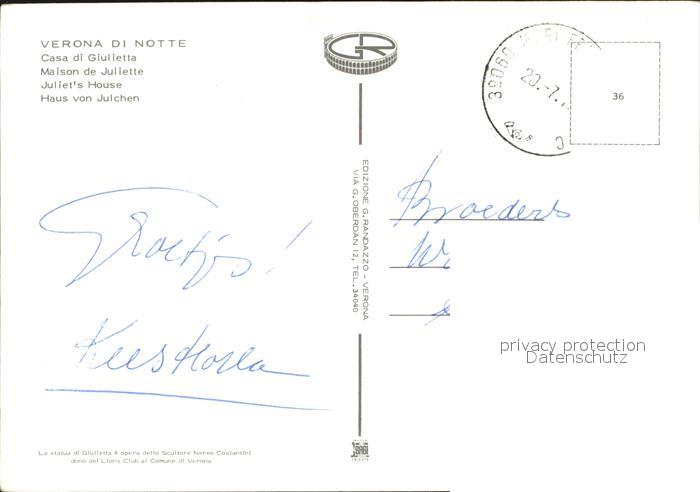 VERONA DI NOTTE
Casa di Giulietta
Maison de Juliette
Juliet's House
Haus von Julchen
GR
38060 MORI
20.-7.
36
EDIZIONE G. RANDAZZO - VERONA
VIA G. OBERDAN 12, TEL. 34040
Groetjes!
Broeders
privacy protection
Datenschutz
La statua di Giulietta è opera dello Scultore Nereo Costantini
dono del Lions Club al Comune di Verona